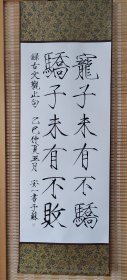 寵子未有不驕
驕子未有不敗
錄古文觀止句 乙巳仲夏五月 安一書于蘇